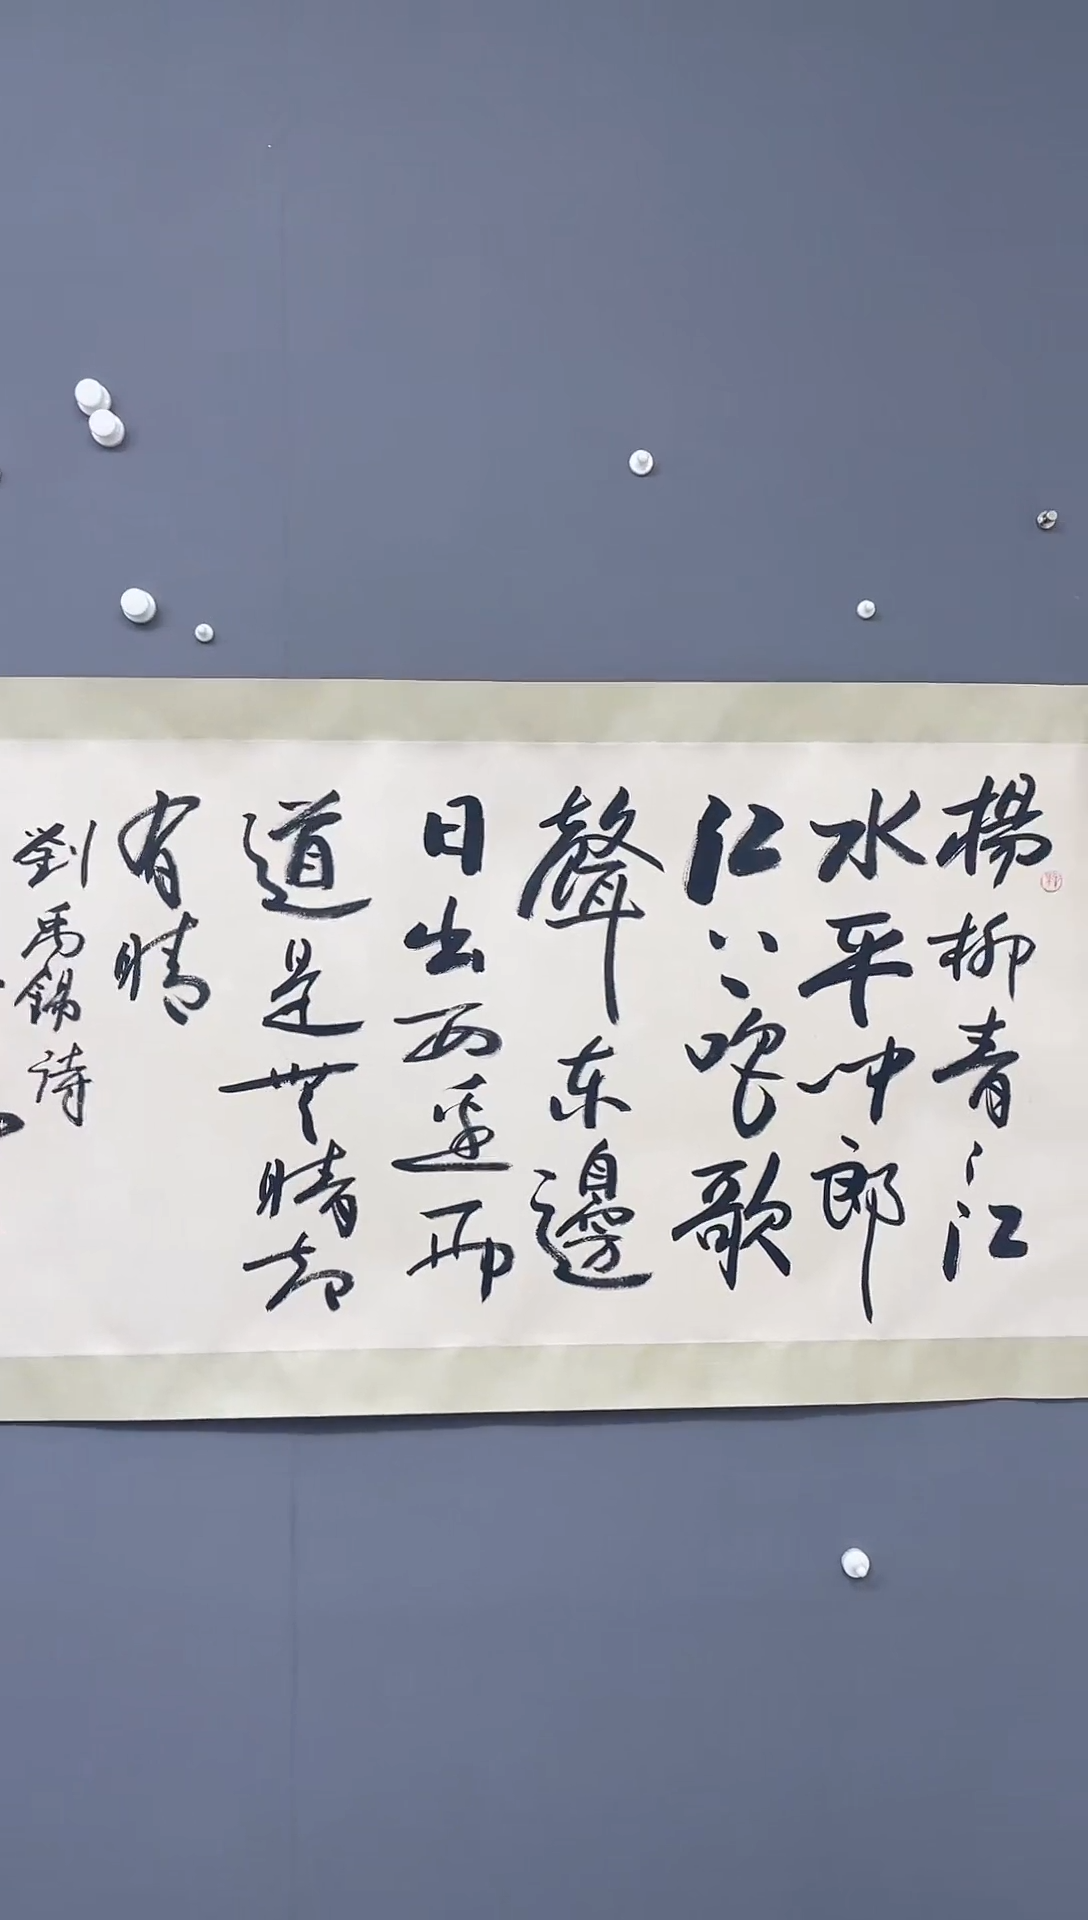 楊柳青〻江
水平聞郎
江上唱歌
聲东邊
日出西邊雨
道是無晴却
有晴
劉禹錫詩